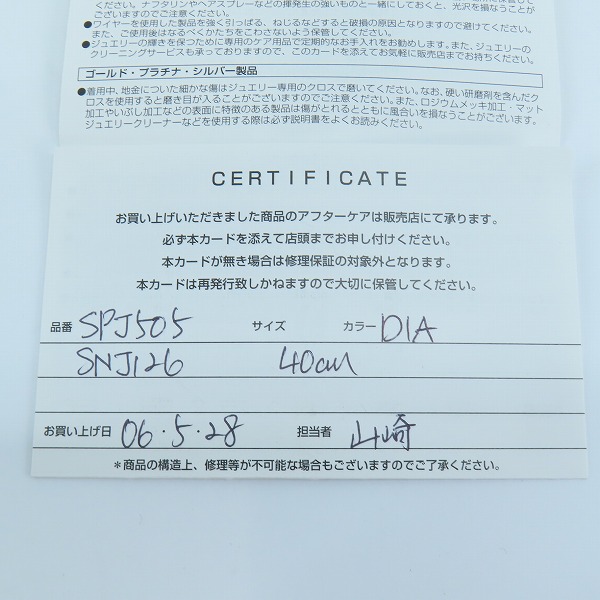 ください。ナフタリンやヘアスプレーなどの揮発生の強いものと一緒にしておくと、光沢を損なうことが
ございますのでご注意ください。
●ワイヤーを使用した製品を強く引っぱる、ねじるなどすると破損の原因となりますので避けてください。
また、ご使用後はなるべくかたちをこわさないよう保管してください。
●ジュエリーの輝きを保つために専用のケア用品で定期的なお手入れをお勧めします。また、ジュエリーの
クリーニングサービスも承っておりますので、このカードを添えてお気軽に販売店までお持ちください。
ゴールド・プラチナ・シルバー製品
●着用中、地金についた細かな傷はジュエリー専用のクロスで磨いてください。なお、硬い研磨剤を含んだク
ロスを使用すると磨き目が入ることがございますのでご注意ください。また、ロジウムメッキ加工・マット
加工やいぶし加工などの表面に特徴のある製品は傷がとれるとともに風合いを損なうことがございます。
ジュエリークリーナーなどを使用する際は必ず説明書をよくお読みください。
CERTIFICATE
お買い上げいただきました商品のアフターケアは販売店にて承ります。
必ず本カードを添えて店頭までお申し付けください。
本カードが無き場合は修理保証の対象外となります。
本カードは再発行致しかねますので大切に保管してください。
品番 SPJ505 サイズ カラー DIA
SNJ126 40cm
お買い上げ日 06・5・28 担当者 山崎
*商品の構造上、修理等が不可能な場合もございますのでご了承ください。